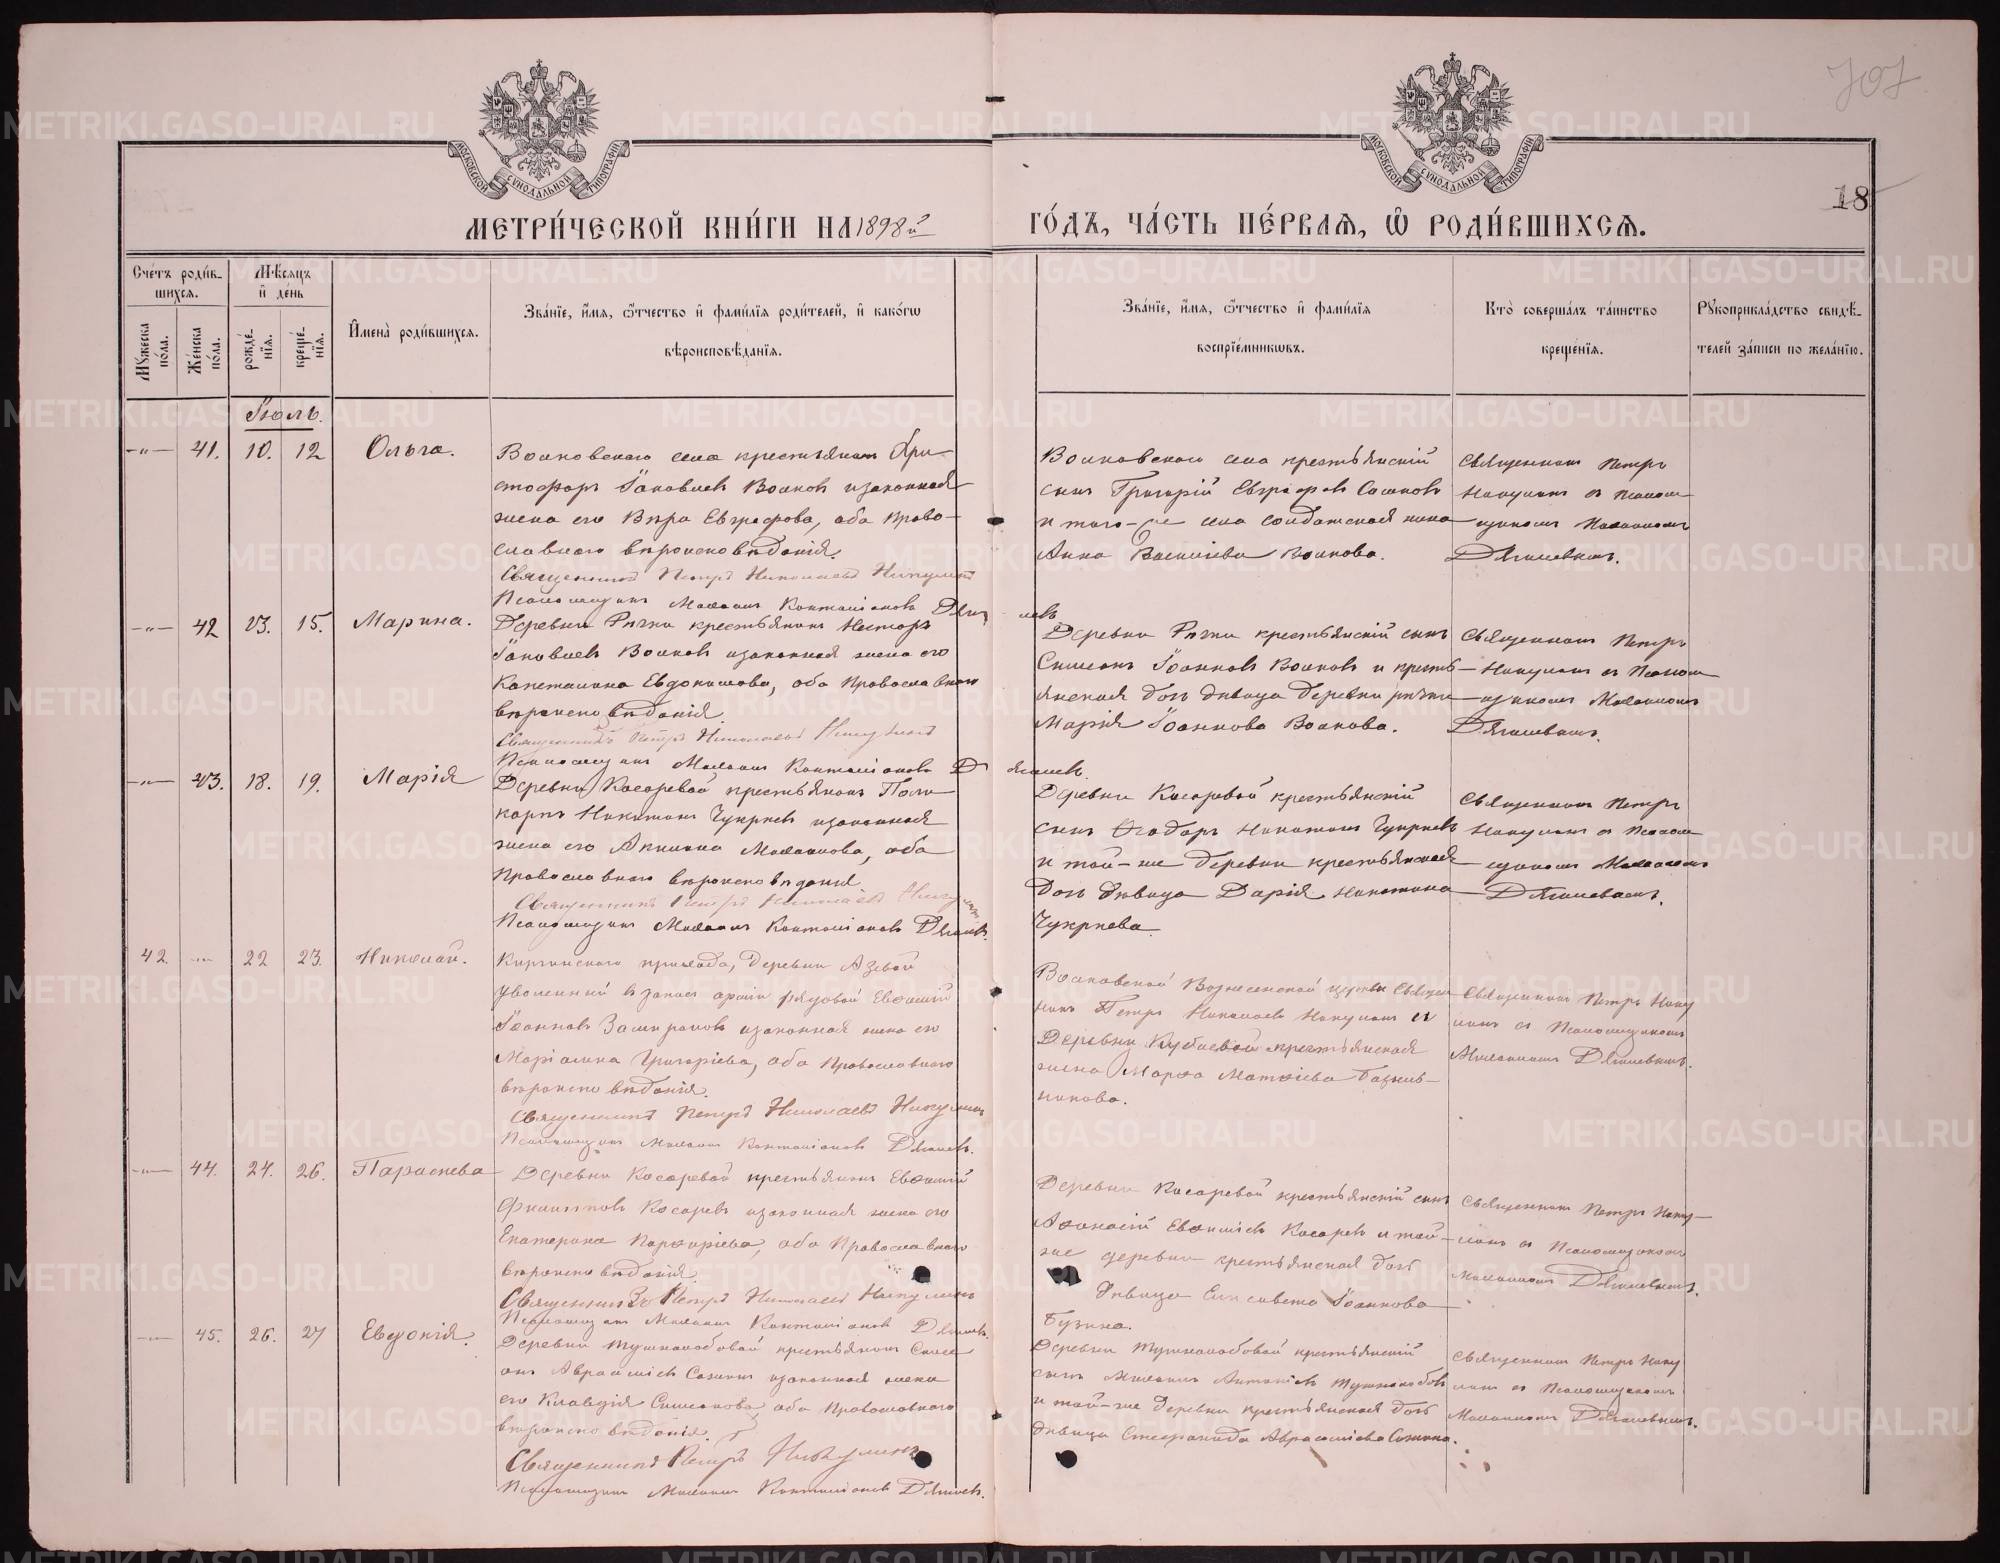 707
18
МОСКОВСКОЙ СѴНОДАЛЬНОЙ ТИПОГРАФІИ
МОСКОВСКОЙ СѴНОДАЛЬНОЙ ТИПОГРАФІИ
МЕТРИ́ЧЕСКОЙ КНИ́ГИ НА 1898й
ГО́ДЪ, ЧА́СТЬ ПЕ́РВАѦ, Ѡ РОДИ́ВШИХСѦ.
Сче́тъ роди́в-
шихсѧ.
Мꙋжеска по́ла.
Же́нска по́ла.
Мѣ́сѧцъ
и҆ де́нь
рожде́-
нїѧ.
креще́-
нїѧ.
И҆мена̀ роди́вшихсѧ.
Зва́нїе, и҆́мѧ, ѻ҆́тчество и҆ фами́лїѧ роди́телей, и҆ како́гѡ
вѣроисповѣ́данїѧ.
Зва́нїе, и҆́мѧ, ѻ҆́тчество и҆ фами́лїѧ
воспрїе́мникѡвъ.
Кто̀ соверша́лъ та́инство
креще́нїѧ.
Рꙋкоприкла́дство свидѣ́-
телей за́писи по жела́нїю.
Іюль.
-"- 41. 10. 12 Ольга.
Волковскаго села крестьянинъ Хри-
стофоръ Іаковлевъ Волковъ изаконная
жена его Вѣра Евграфова, оба Право-
славнаго вѣроисповѣданія.
Священникъ Петръ Николаевъ Никулинъ
Псаломщикъ Михаилъ Дягилевъ
Волковскаго села крестьянскій
сынъ Григорій Евграфовъ
и того-же села солдатская жена
Анна Васильева Волкова.
Священникъ Петръ
Никулинъ съ Псалом-
щикомъ Михаиломъ
Дягилевымъ.
-"- 42 13. 15. Марина.
Деревни Рѣчки крестьянинъ Несторъ
Іаковлевъ Волковъ изаконная жена его
Капиталина Евдокимова, оба Православнаго
вѣроисповѣданія.
Священникъ Петръ Николаевъ Никулинъ
Псаломщикъ Михаилъ Дягилевъ
Деревни Рѣчки крестьянскій сынъ
Симеонъ Іоанновъ Волковъ и кресть-
янская дочь дѣвица деревни Рѣчки
Марія Іоаннова Волкова.
Священникъ Петръ
Никулинъ съ Псалом-
щикомъ Михаиломъ
Дягилевымъ.
-"- 43. 18. 19. Марія
Деревни Косаревой крестьянинъ Поли-
карпъ Никитинъ Чукреевъ изаконная
жена его Михаилова, оба
Православнаго вѣроисповѣданія.
Священникъ Петръ Николаевъ Никулинъ
Псаломщикъ Михаилъ Дягилевъ.
Деревни Косаревой крестьянскій
сынъ Ѳеодоръ Никитинъ Чукреевъ
и той-же деревни крестьянская
дочь дѣвица Дарія Никитина
Чукреева.
Священникъ Петръ
Никулинъ съ Псалом-
щикомъ Михаиломъ
Дягилевымъ.
42. -"- 22 23. Николай.
Киргинскаго прихода, деревни Азевой
уволенный въ запасъ арміи рядовой Евѳимій
Іоанновъ изаконная жена его
Маріамна Григоріева, оба Православнаго
вѣроисповѣданія.
Священникъ Петръ Николаевъ Никулинъ
Псаломщикъ Михаилъ Дягилевъ.
Волковской Вознесенской церкви Священ-
никъ Петръ Николаевъ Никулинъ и
деревни крестьянская
жена Марѳа Матѳіева
никова.
Священникъ Петръ Нику
линъ съ Псаломщикомъ
Михаиломъ Дягилевымъ.
-"- 44. 24. 26. Параскева
Деревни Косаревой крестьянинъ Евѳимій
Филипповъ Косаревъ изаконная жена его
Екатерина Порфиріева, оба Православнаго
вѣроисповѣданія.
Священникъ Петръ Николаевъ Никулинъ
Псаломщикъ Михаилъ Дягилевъ.
Деревни Косаревой крестьянскій сынъ
Аѳанасій Евѳиміевъ Косаревъ и той-
же деревни крестьянская дочь
дѣвица Елисавета Іоаннова
Бузина.
Священникъ Петръ Нику-
линъ съ Псаломщикомъ
Михаиломъ Дягилевымъ.
-"- 45. 26. 27 Евдокія.
Деревни крестьянинъ Симе
онъ Авраміевъ изаконная жена
его Клавдія Симеонова, оба Православнаго
вѣроисповѣданія.
Священникъ Петръ Никулинъ
Псаломщикъ Михаилъ Дягилевъ.
Деревни крестьянскій
сынъ Михаилъ
и той-же деревни крестьянская дочь
дѣвица Стефанида Авраміева
Священникъ Петръ Нику
линъ съ Псаломщикомъ
Михаиломъ Дягилевымъ.
METRIKI.GASO-URAL.RU